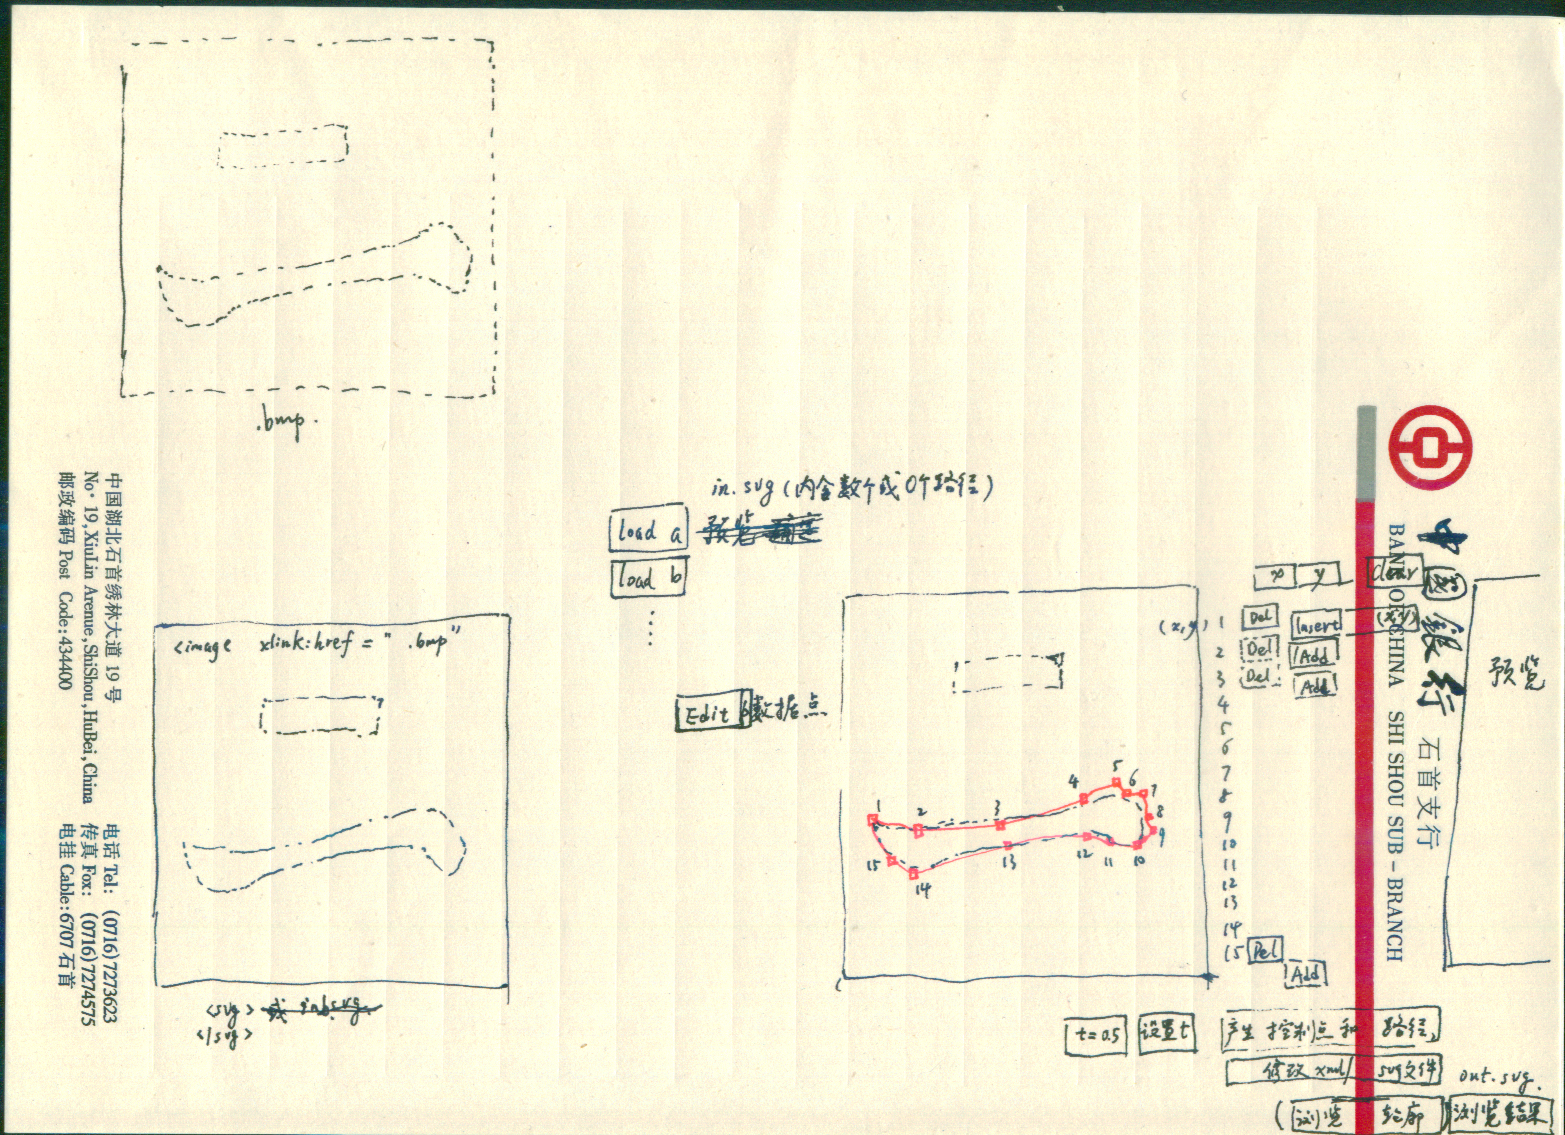 .bmp.
in.svg (内含数个或0个路径)
load a 预览
load b
<image xlink:href = " .bmp"
Edit 数据点
<svg>
</svg>
x y clear
(x,y) 1 Del Insert (x,y)
2 Del Add
3 Del Add
4
6
7
8
9
10
11
12
13
14
15 Del
Add
预览
1 2 3 4 5 6 7 8 9 10 11 12 13 14 15
t=0.5 设置t 产生控制点和路径,
修改xml/svg文件 out.svg.
(浏览轮廓) 浏览结果
中国银行 石首支行
BANK OF CHINA SHI SHOU SUB-BRANCH
中国湖北石首绣林大道 19 号 电话 Tel: (0716)7273623
No· 19,XiuLin Arenue,ShiShou,HuBei,China 传真 Fox: (0716)7274575
邮政编码 Post Code:434400 电挂 Cable:6707 石首